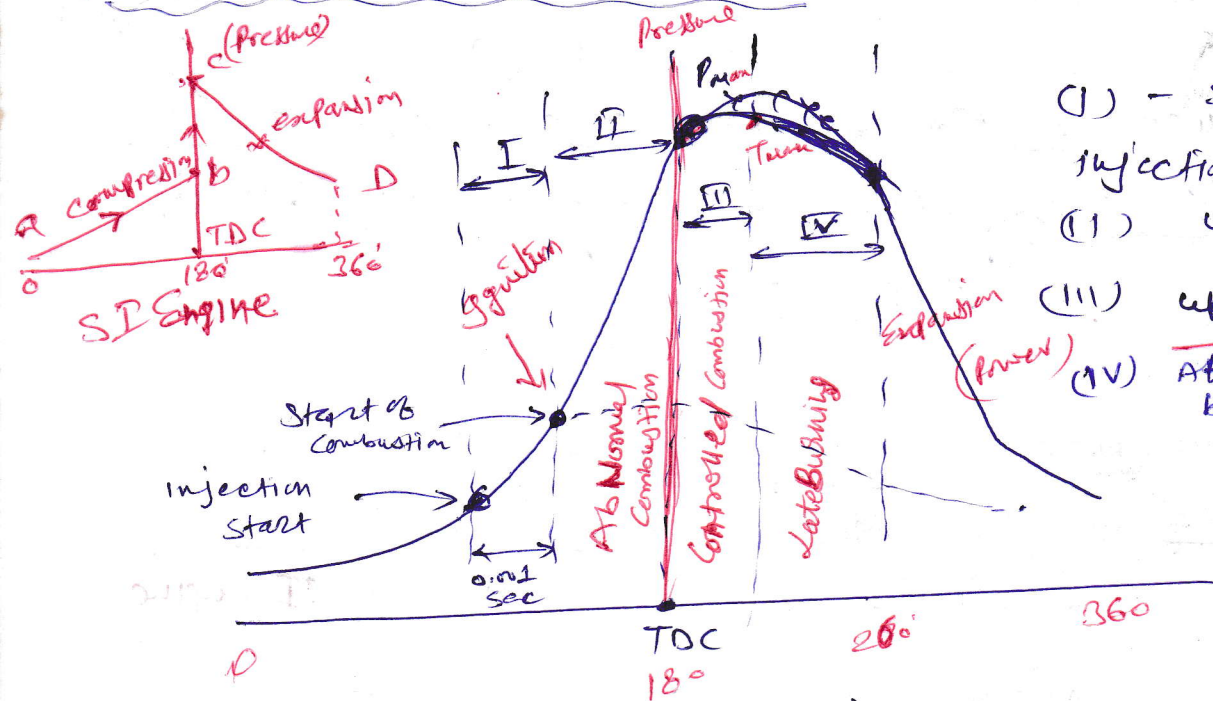 C (Pressure)
expansion
a compression
b
D
TDC
0
180°
360°
SI Engine
Pressure
Pmax
Tmax
I
II
III
IV
Ignition
Start of
Combustion
Injection
Start
0.001
sec
Abnormal
Combustion
Controlled Combustion
Late Burning
Expansion
(Power)
TDC
0
180
360
(I) -
injectio
(II)
(III)
(IV)